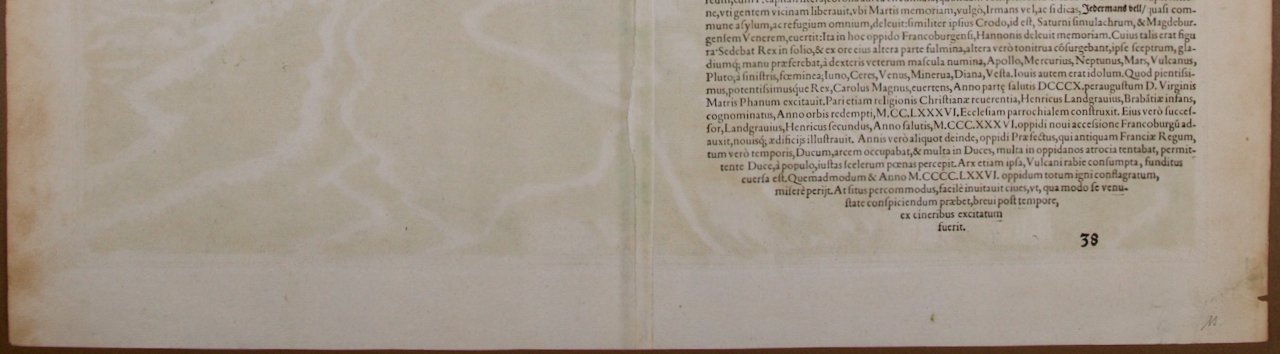 ne, vti gentem vicinam liberauit, vbi Martis memoriam, vulgò, Irmans vel, ac si dicas, Jedermans vell/ quasi com-
mune asylum, ac refugium omnium, deleuit: similiter ipsius Crodo, id est, Saturni simulachrum, & Magdebur-
gensem Venerem, euertit: Ita in hoc oppido Francoburgensi, Hannonis deleuit memoriam. Cuius talis erat figu
ra. Sedebat Rex in solio, & ex ore eius altera parte fulmina, altera verò tonitrua cōsurgebant, ipse sceptrum, gla-
diumq; manu præferebat, à dexteris veterum mascula numina, Apollo, Mercurius, Neptunus, Mars, Vulcanus,
Pluto; à sinistris, fœminea; Iuno, Ceres, Venus, Minerua, Diana, Vesta. Iouis autem erat idolum. Quod pientissi-
mus, potentissimusque Rex, Carolus Magnus, euertens, Anno partę salutis DCCCX. peraugustum D. Virginis
Matris Phanum excitauit. Pari etiam religionis Christianæ reuerentia, Henricus Landgrauius, Brabātiæ infans,
cognominatus, Anno orbis redempti, M.CC.LXXXVI. Ecclesiam parrochialem construxit. Eius verò succes-
sor, Landgrauius, Henricus secundus, Anno salutis, M.CCC.XXXVI. oppidi noui accessione Francoburgū ad-
auxit, nouisq; ædificijs illustrauit. Annis verò aliquot deinde, oppidi Præfectus, qui antiquam Franciæ Regum,
tum verò temporis, Ducum, arcem occupabat, & multa in Duces, multa in oppidanos atrocia tentabat, permit-
tente Duce, à populo, iustas scelerum pœnas percepit. Arx etiam ipsa, Vulcani rabie consumpta, funditus
euersa est. Quemadmodum & Anno M.CCCC.LXXVI. oppidum totum igni conflagratum,
miserè perijt. At situs percommodus, facilè inuitauit ciues, vt, qua modo se venu-
state conspiciendum præbet, breui post tempore,
ex cineribus excitatum
fuerit.
38